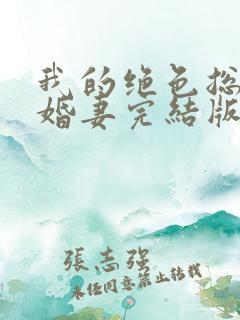 我的绝色总
婚妻完结版
張志强
未经同意禁止转载